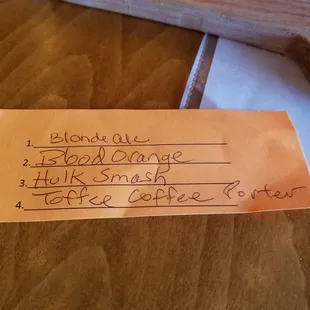 1. Blonde ale
2. Blood Orange
3. Hulk Smash
4. Toffee Coffee Porter